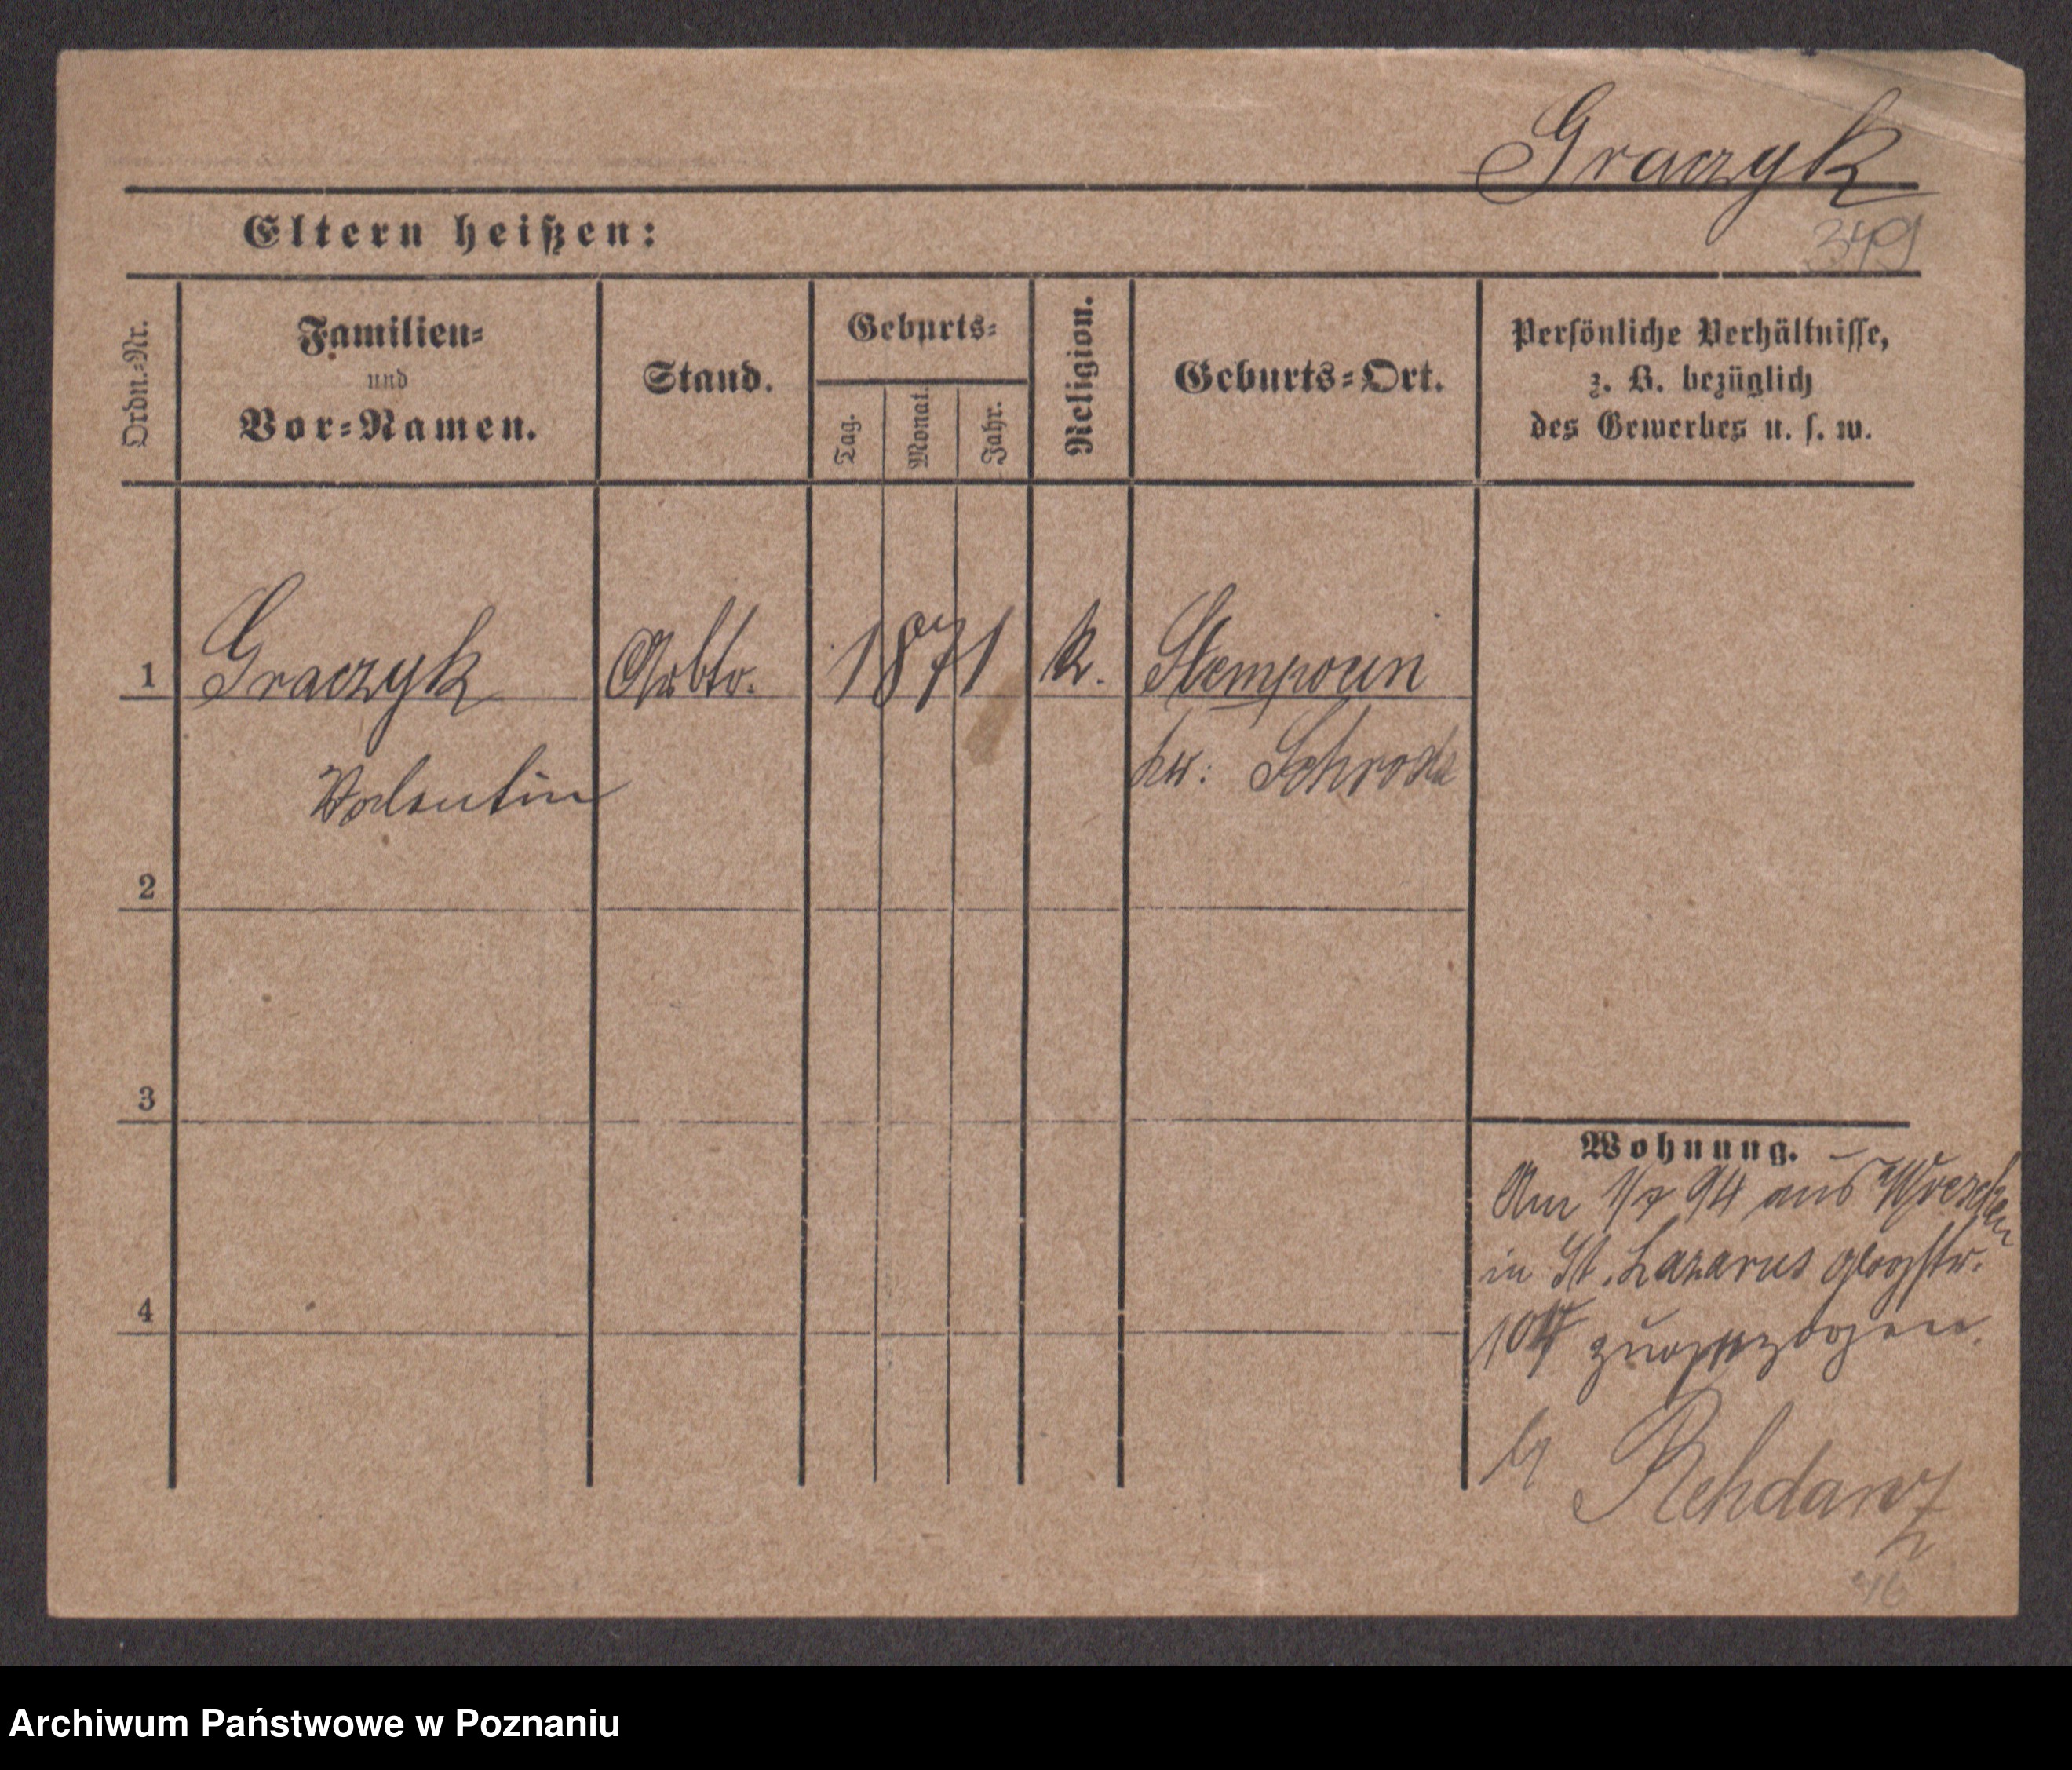 Graczyk
349
Eltern heißen:
Ordn.-Nr.
Familien-
und
Vor-Namen.
Stand.
Geburts-
Tag.
Monat.
Jahr.
Religion.
Geburts-Ort.
Persönliche Verhältnisse,
z. B. bezüglich
des Gewerbes u. s. w.
1 Graczyk Arbtr. 1871 k. Stempocin
Kr: Schroda
Valentin
2
3
4
Wohnung.
Am 1/7 94 aus Wreschen
in St. Lazarus Glogstr.
104 zugezogen.
b/ Rehdanz
Archiwum Państwowe w Poznaniu